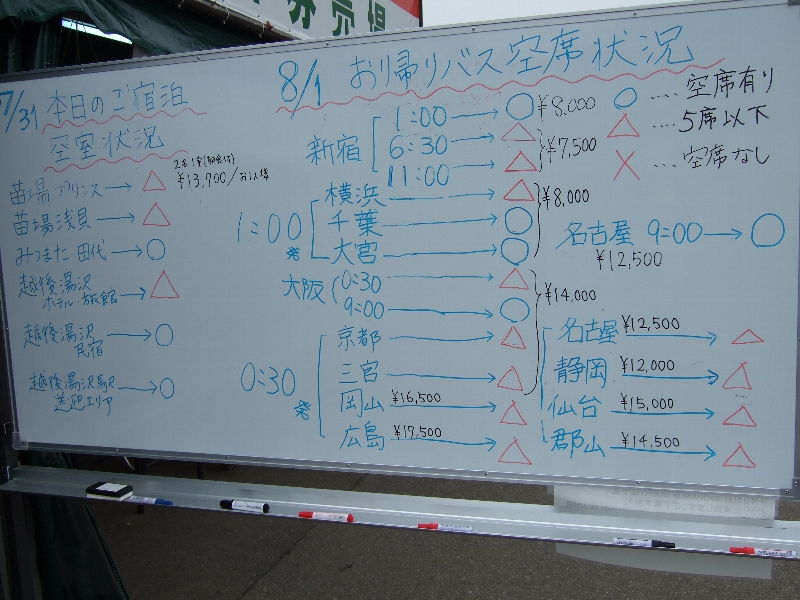 券売場
7/31 本日のご宿泊
空室状況
2名1室(朝食付)
苗場プリンス→△ ¥13,700/お1人様
苗場浅貝→△
みつまた・田代→○
越後湯沢
ホテル・旅館→△
越後湯沢
民宿→○
越後湯沢駅
送迎エリア→○
8/1 お帰りバス空席状況
新宿 1:00→○ ¥8,000
6:30→△
11:00→△ ¥7,500
1:00発
横浜→△
千葉→○
大宮→○
¥8,000
大阪 0:30→△
9:00→○
0:30発
京都→△
三宮→△
¥14,000
岡山 ¥16,500→△
広島 ¥17,500→△
○....空席有り
△....5席以下
×....空席なし
名古屋 9:00→○
¥12,500
名古屋 ¥12,500→△
静岡 ¥12,000→△
仙台 ¥15,000→△
郡山 ¥14,500→△